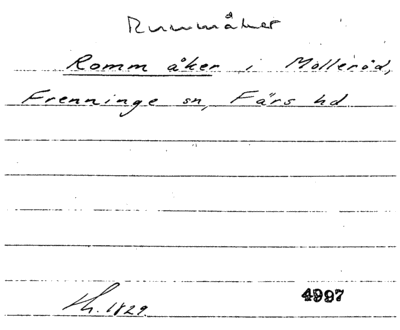 Rummåker
Romm åker i Molleröd,
Frenninge sn, Färs hd
Th. 1829
4997